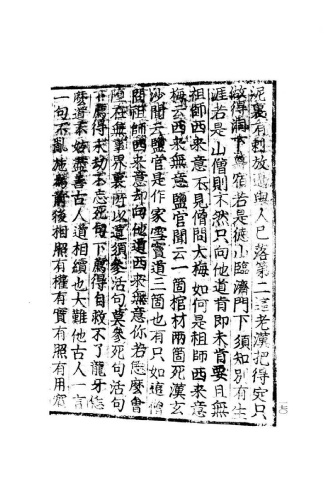 泥裏有刺放過與人已落第二這老漢把得定只
做得洞下尊宿若是德山臨濟門下須知別有生
涯若是山僧則不然只向他道肯即未肯要且無
祖師西來意不見僧問大梅如何是祖師西來意
梅云西來無意鹽官聞云一箇棺材兩箇死漢玄
沙聞云鹽官是作家雪竇道三箇也有只如這僧
問祖師西來意却向他道西來無意你若恁麼會
墮在無事界裏所以道須參活句莫參死句活句
下薦得永劫不忘死句下薦得自救不了龍牙恁
麼道不妨盡善古人道相續也大難他古人一言
一句不亂施爲前後相照有權有實有照有用賓